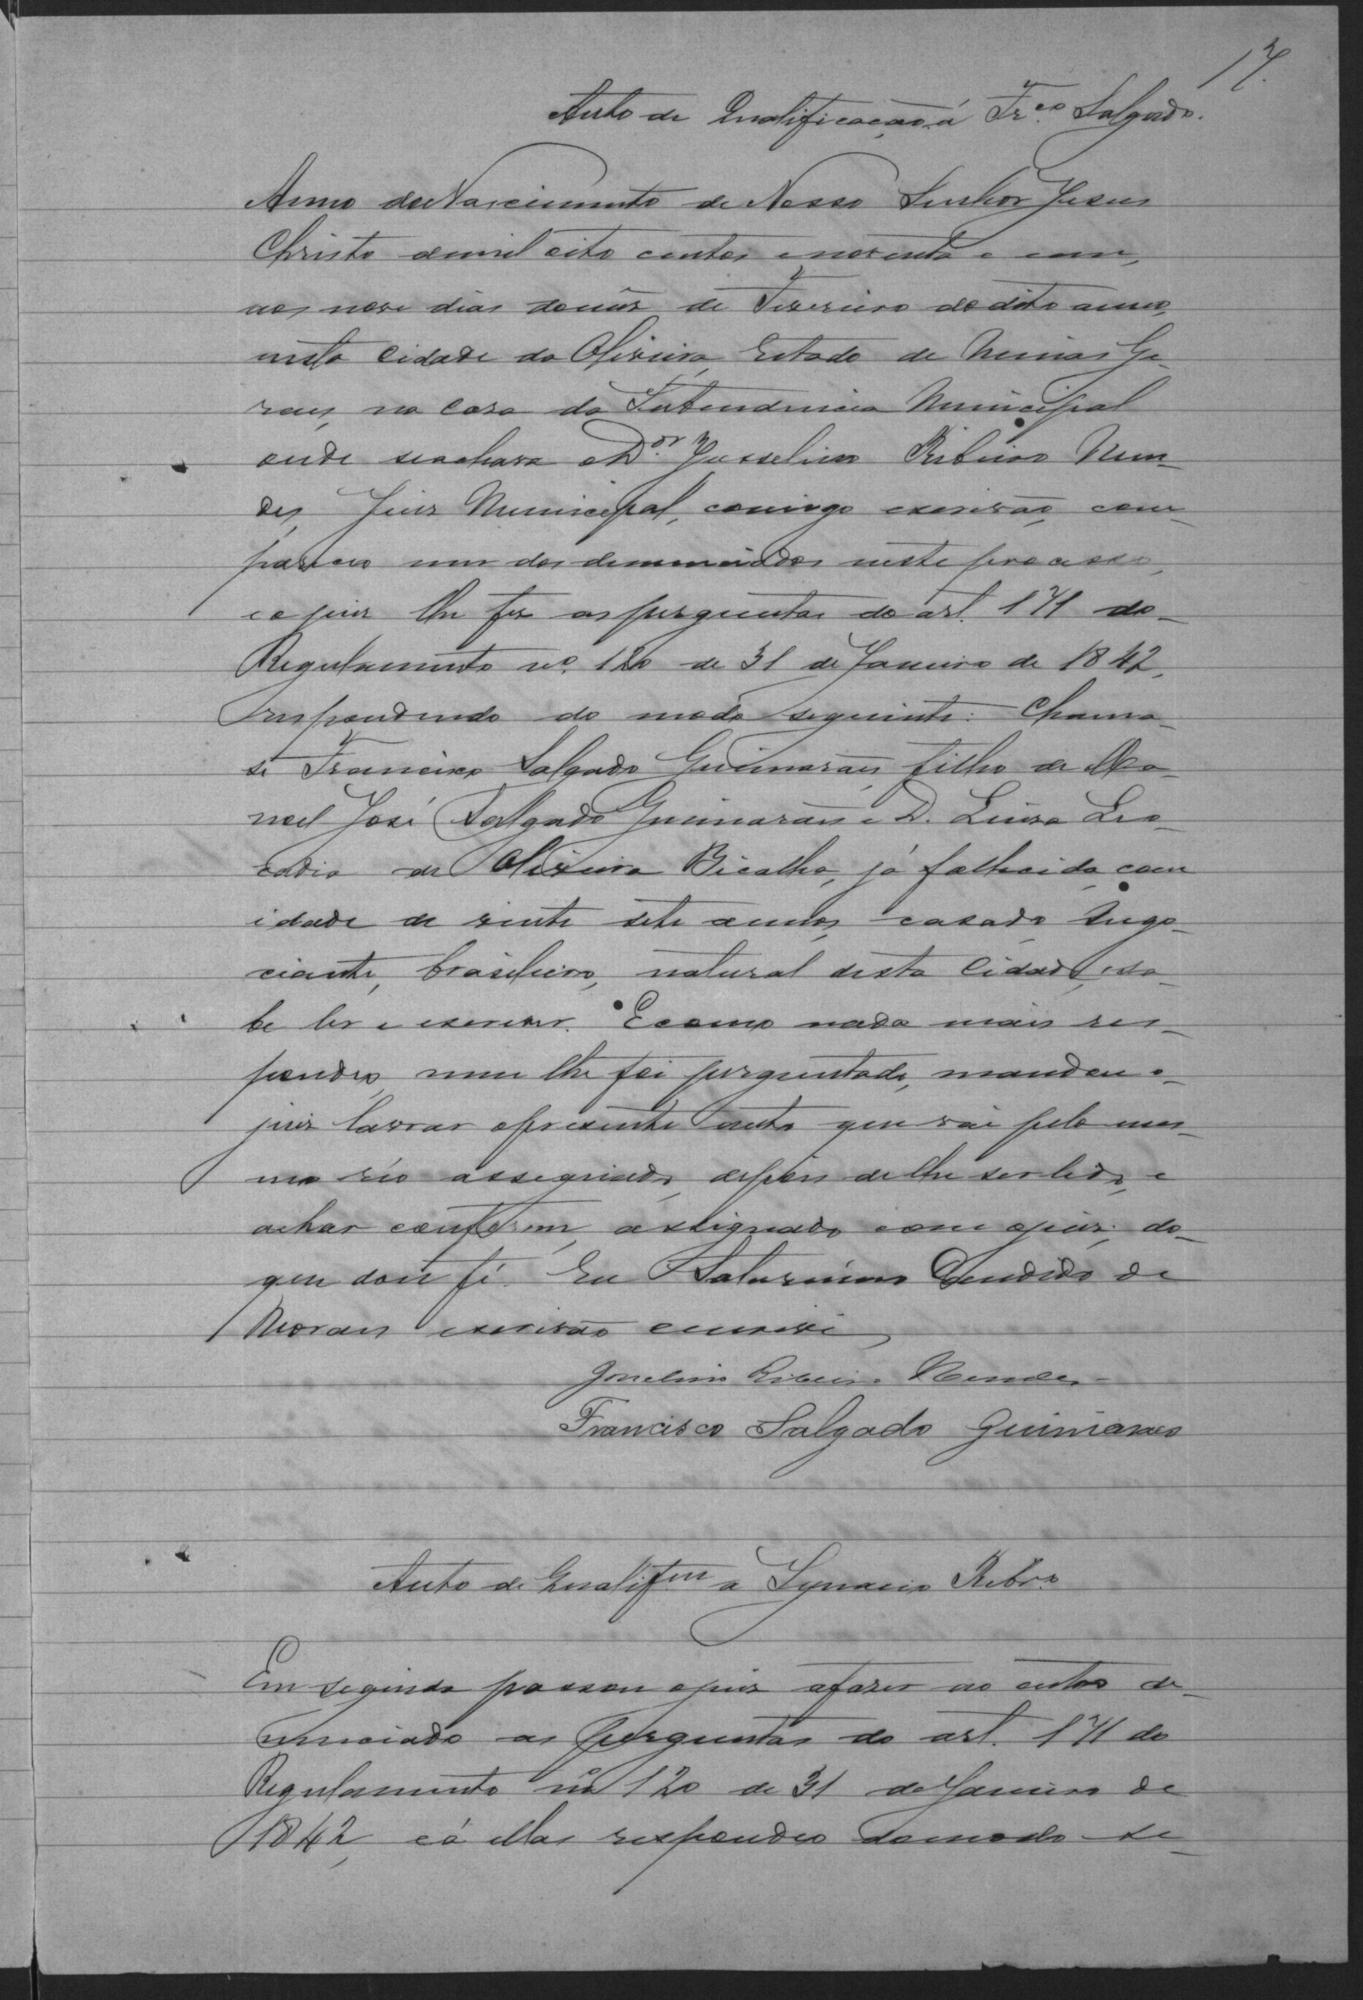 17.
Auto de Qualificação á Fr.co Salgado.
Anno do Nascimento de Nosso Senhor Jesus
Christo de mil oito centos e noventa e um,
aos nove dias do mez de Fevereiro do dito anno,
nesta Cidade da Oliveira, Estado de Minas Ge-
raes, na casa da Intendencia Municipal
onde se achava o D.or Josselino Ribeiro Men-
des, Juiz Municipal, comigo escrivão, com-
pareceo um dos denunciados neste processo,
e o juiz lhe fez as perguntas do art. 171 do
Regulamento nº 120 de 31 de Janeiro de 1842,
respondendo do modo seguinte: Chama-
se Francisco Salgado Guimarães, filho de Ma-
noel José Salgado Guimarães e D. Luiza Leo-
cadia de Oliveira Bicalho, já fallecida, com
idade de vinte sete annos, casado, nego-
ciante, brasileiro, natural desta Cidade, e sa-
be ler e escrever. E como nada mais res-
pondeo, nem lhe foi perguntado, mandou o
juiz lavrar o presente auto que vai pelo mes-
mo réo assignado, depois de lhe ser lido, e
achar conforme, assignado com o juiz, do
que dou fé. Eu Saturnino Candido de
Moraes escrivão escrevi,
Josselino Ribeiro Mendes
Francisco Salgado Guimarães
Auto de Qualif.em a Ignacio Ribr.o
Em seguida passou o juiz a fazer ao outro de-
nunciado as perguntas do art. 171 do
Regulamento nº 120 de 31 de Janeiro de
1842, e á ellas respondeo do modo se-